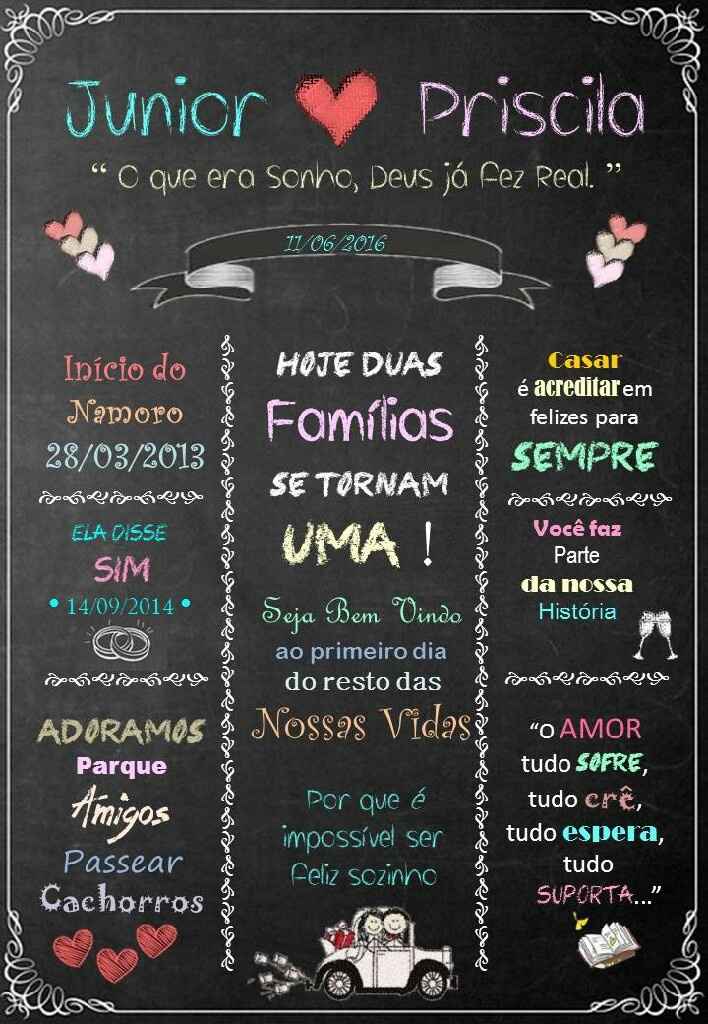 Junior Priscila
“ O que era Sonho, Deus já fez Real. ”
11/06/2016
Início do
Namoro
28/03/2013
ELA DISSE
SIM
• 14/09/2014 •
ADORAMOS
Parque
Amigos
Passear
Cachorros
HOJE DUAS
Famílias
SE TORNAM
UMA !
Seja Bem Vindo
ao primeiro dia
do resto das
Nossas Vidas
Por que é
impossível ser
feliz sozinho
Casar
é acreditar em
felizes para
SEMPRE
Você faz
Parte
da nossa
História
“O AMOR
tudo SOFRE,
tudo crê,
tudo espera,
tudo
SUPORTA...”